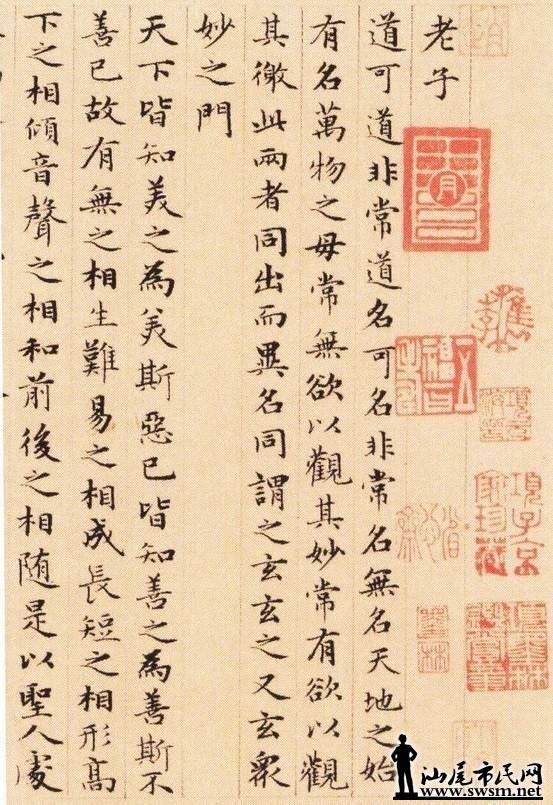 老子
道可道非常道名可名非常名無名天地之始
有名萬物之母常無欲以觀其妙常有欲以觀
其徼此兩者同出而異名同謂之玄玄之又玄眾
妙之門
天下皆知美之為美斯惡已皆知善之為善斯不
善已故有無之相生難易之相成長短之相形高
下之相傾音聲之相和前後之相随是以聖人處
項子京
家珍藏
汕尾市民网
www.swsm.net